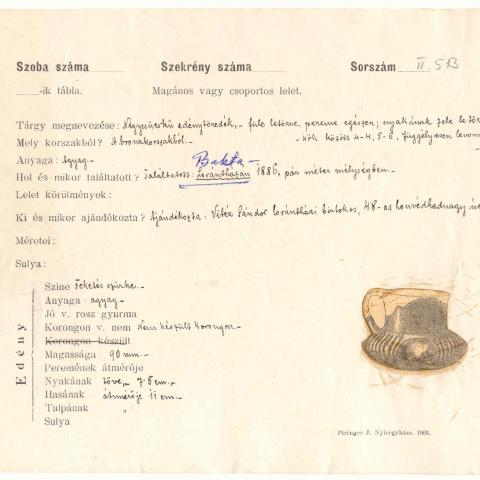 Szoba száma Szekrény száma Sorszám II. 513
-ik tábla. Magános vagy csoportos lelet.
Tárgy megnevezése: Négyszürkü edénytöredék,- füle letörve, pereme egészen; nyakának fele letör
Mely korszakból? A bronzkorszakból.- közt 4-4, 5-6, függélyesen
Anyaga: agyag-
Bakta-
Hol és mikor találtatott? Találtatott: Lorántházán 1886, pár méter mélységben.-
Lelet körülmények:
Ki és mikor ajándékozta? Ajándékozta: Vitéz Sándor lorántházi birtokos, 48-as honvédhadnagy
Méretei:
Sulya:
Edény
Szine Feketés szürke.-
Anyaga agyag-
Jó v. rosz gyurma
Korongon v. nem Nem készült korongon.-
Korongon készült
Magassága 90 mm.-
Peremének átmérője
Nyakának töve,- 7·5 cm.-
Hasának átmérője 11 cm.-
Talpának "
Sulya
Piringer J. Nyiregyháza. 1902.